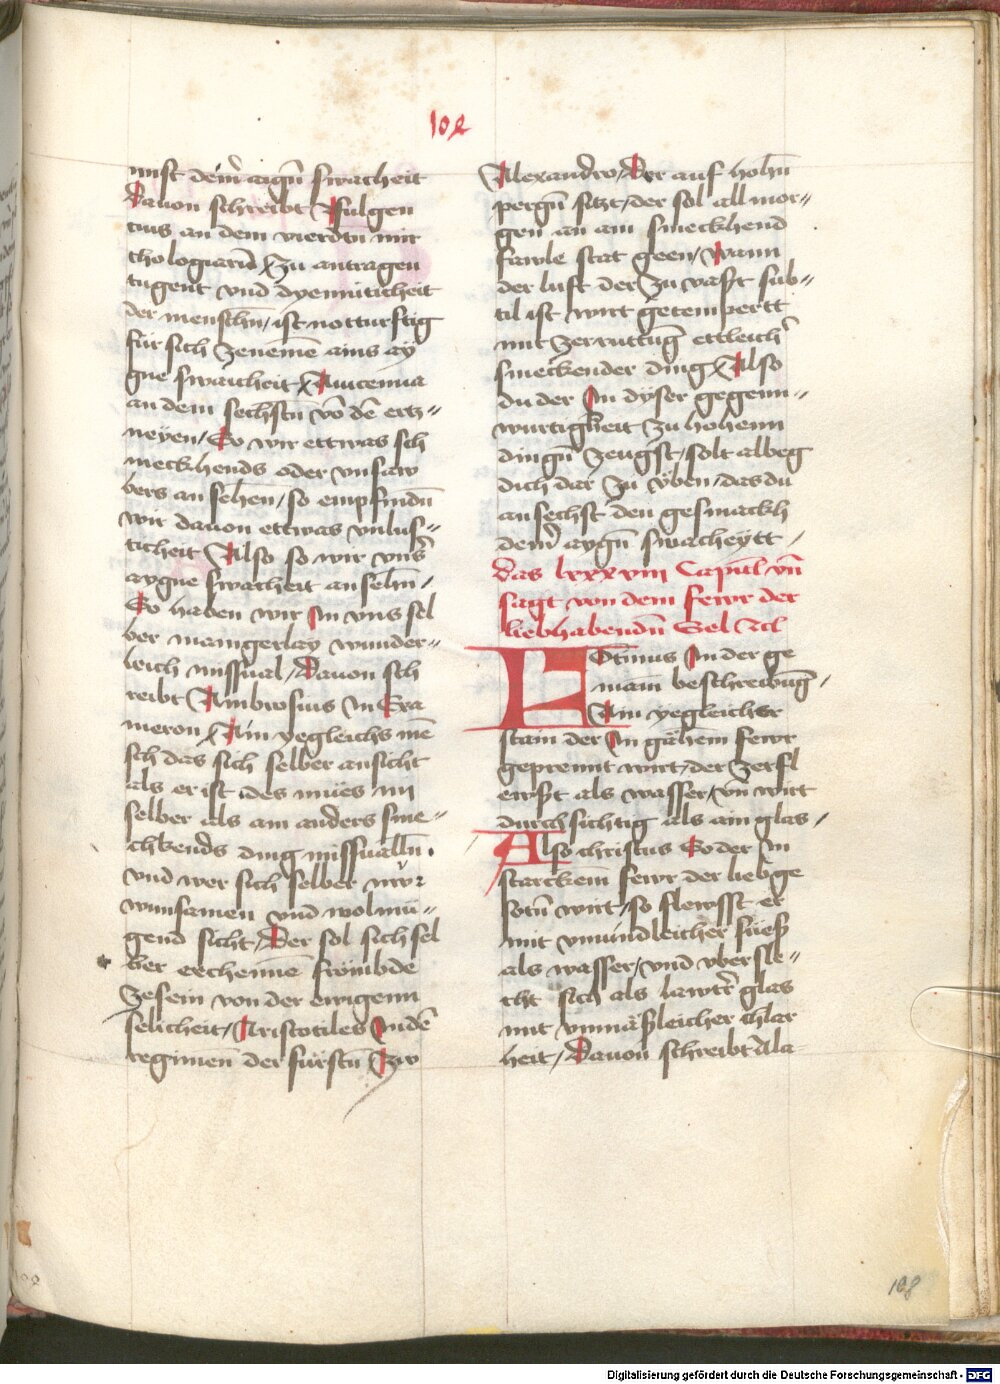 108
mist deinr̄ aign̄ swacheit
Dauon schreibt Fulgen
cius an dem vierdn̄ mit
thologiarū Zu antragen
tugent vnd dyemüticheit
der menschn̄ / ist notturftig
für sich Zenemē ains ay
gne swacheit Auicenna
an dem sechstn̄ vō dē ertz=
neyen / So wir ettwas sch
meckhends oder vnsaw
bers an sehen / so empfindn̄
wir dauon ettwas vnlus=
ticheit Also so wir vnsr̄
aygne swacheit an sehn̄ /
So haben wir In vns sel
ber manigerlay wunder=
leich missual / Dauon sch
reibt Ambrosius In Exa
meron Ain yegleichs mē
sch das sich selber ansicht
als er ist ides mües im
selber als ain anders sme=
chkends ding missualln̄ .
vnd wer sich selber nwr
wunsamen vnd wolmü=
gend sicht / Der sol sich sel
ber erchennē frömbde
Zesein von der ewigenn
selicheit / Aristotiles In dē
regimen der fürstn̄ Zw
Alexandro / Der auf hohn̄
pergn̄ sitzt / der sol all mor=
gen an ain smeckhend
fawle stat geen / Wann
der luft der Zu vast sub=
til ist wirt getempertt
mit Zerruttūg ettleichr̄
smeckender ding Also
du der In dyser gegenn=
wurtigheit Zu hohenn
dingn̄ Zeugst / solt albeg
dich dar Zu yben / das du
an sechst den gesmackh
deinr̄ aygn̄ swacheytt /
Das lxxxviii Capitl vn̄
sagt von dem fewr der
liebhabendn̄ Sel Etc̄
Otimus In der ge
main beschreibūg /
Ain yegleicher
stain der In gähem fewr
geprennt wirt / der Zerfl
ewst als wasser / vn̄ wirt
durchsichtig als ain glas /
Also christus So der In
starckem fewr der lieb ge
sotn̄ wirt / so flewsst er
mit vnundleicher süess
als wasser / vnd vbersle=
cht sich als lawtr̄ glas
mit vnmässleicher chlar
heit / Dauon schreibt Ala
108
Digitalisierung gefördert durch die Deutsche Forschungsgemeinschaft - DFG